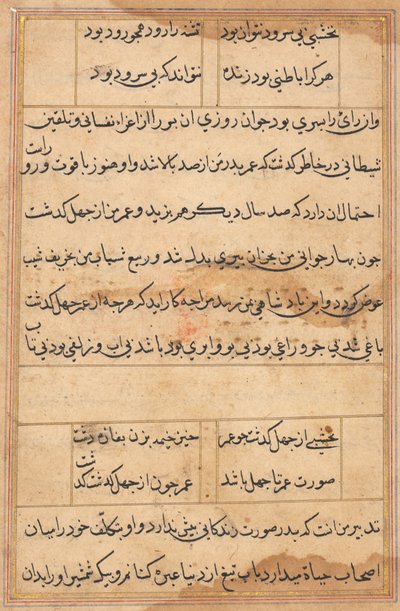 نخشبی بی سرود نتوان بود تشنه را رود همجو رود بود
هر کرا باطنی بود زنده نتواند که بی سرود بود
وان رای را پسری بود جوان روزی ان پسر را از اغراء نفسانی و تلقین
شیطانی در خاطر کذشت که عمر پدر من از صد بالا شد و او هنوز با قوت و رو راست
احتمال ان دارد که صد سال دیکر هم بزید و عمر من از جهل کذشت
جون بهار جوانی من بخزان پیری بدل شد و ربیع شباب من بخریف شیب
عوض کردد و این پادشاهی بمن رسد مرا جه کار اید که هر جه از عمر جهل کذشت
باغی شد بی جو و راغی بود بی بو بود باشد بی اب و زلفی بود بی تاب
نخشبی از جهل کذشت جو عمر خیز خیمه بزن دشت
صورت عمر تا جهل باشد عمر جون از جهل کذشت کذشت
تدبیر من انست که پدر صورت زندکانی بیش ندارد و او بتکلف خود را میان
اصحاب حیاة میدارد باب تیغ از دنیا عبره کنانم و بیک شمشیر او را بدان